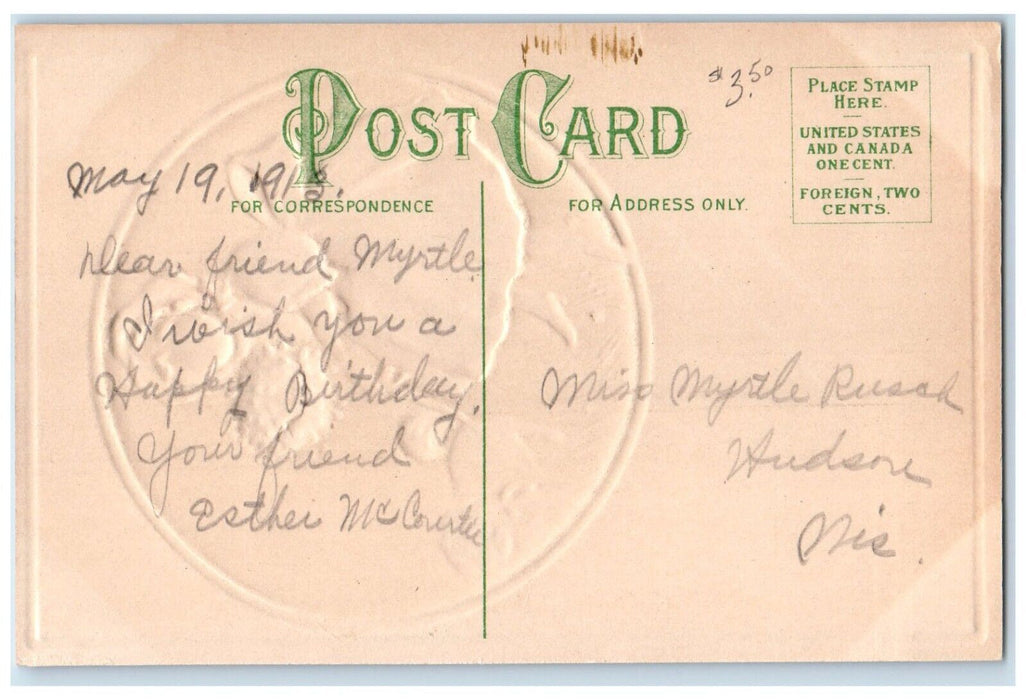 POST CARD
$3.50
PLACE STAMP
HERE.
UNITED STATES
AND CANADA
ONE CENT.
FOREIGN, TWO
CENTS.
May 19, 1913.
FOR CORRESPONDENCE
FOR ADDRESS ONLY.
Dear friend Myrtle
I wish you a
Happy Birthday.
Your friend
Esther
Miss Myrtle Rusch
Hudson
Wis.